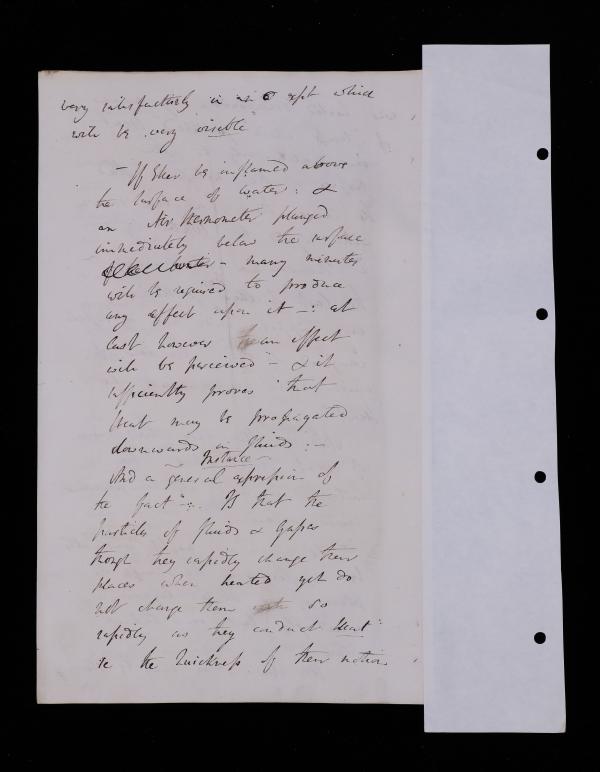 very satisfactorily in an expt which
will be very visible
– If Ether be inflamed above
the surface of water: &
an Air thermometer plunged
immediately below the surface
– many minutes
will be required to produce
any effect upon it –: at
last however an effect
will be perceived – & it
sufficiently proves that
heat may be propagated
downwards in fluids :–
Instance
And a general expression of
the fact –:. Is that the
particles of fluids & Gases
though they rapidly change their
places when heated yet do
not change them so
rapidly as they conduct Heat
ie the Quickness of their motion